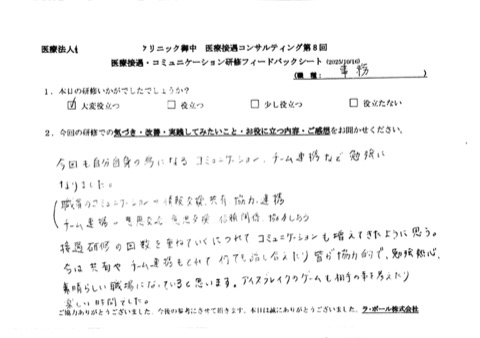 医療法人
クリニック御中 医療接遇コンサルティング第8回
医療接遇・コミュニケーション研修フィードバックシート (2025/10/16)
(職 種: 事務 )
1.本日の研修いかがでしたでしょうか?
☑ 大変役立つ □ 役立つ □ 少し役立つ □ 役立たない
2.今回の研修での気づき・改善・実践してみたいこと・お役に立つ内容・ご感想をお聞かせください。
今回も自分自身の為になる コミュニケーション、チーム連携など 勉強に
なりました。
職場のコミュニケーション 情報交換、共有 協力、連携
チーム連携 意思 信頼関係
接遇研修の回数を重ねていくにつれて コミュニケーションも増えてきたように思う。
今は 共有や チーム連携もとれて 何でも話し合えたり 皆が協力的で、勉強熱心、
素晴らしい職場になっていると思います。アイスブレイクのゲームも相手の事を考えたり
楽しい時間でした。
ご協力ありがとうございました。今後の参考にさせて頂きます。本日は誠にありがとうございました。ラ・ポール株式会社